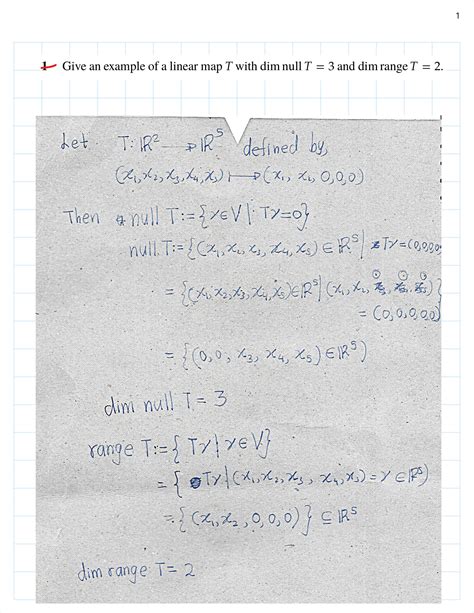 1
1 Give an example of a linear map T with dim null T = 3 and dim range T = 2.
Let T: ℝ² → ℝ⁵ defined by,
(x₁, x₂, x₃, x₄, x₅) ↦ (x₁, x₂, 0, 0, 0)
Then null T := {v ∈ V | Tv = 0}
null T := {(x₁, x₂, x₃, x₄, x₅) ∈ ℝ⁵ | Tv = (0,0,0,0,
= {(x₁, x₂, x₃, x₄, x₅) ∈ ℝ⁵ | (x₁, x₂, 0, 0, 0)}
= (0,0,0,0,0)
= {(0, 0, x₃, x₄, x₅) ∈ ℝ⁵)
dim null T = 3
range T := {Tv | v ∈ V}
= {Tv | (x₁, x₂, x₃, x₄, x₅) = v ∈ ℝ⁵)
= {(x₁, x₂, 0, 0, 0)} ⊆ ℝ⁵
dim range T = 2